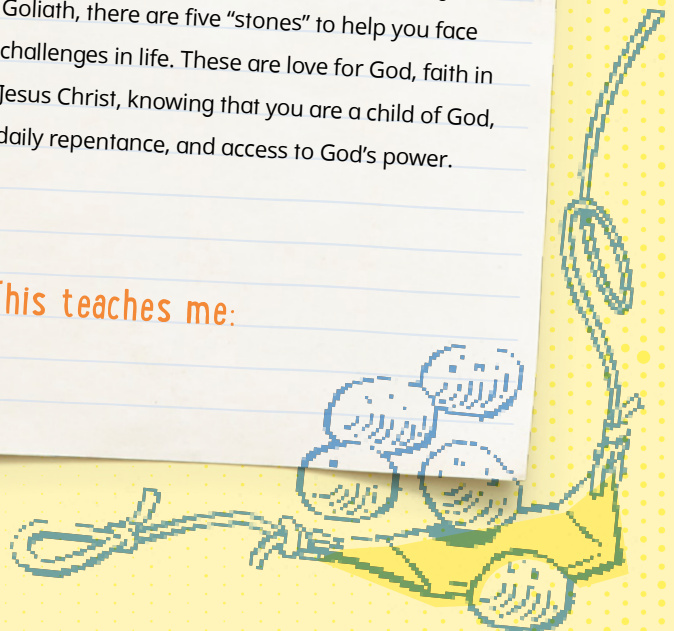 Goliath, there are five “stones” to help you face
challenges in life. These are love for God, faith in
Jesus Christ, knowing that you are a child of God,
daily repentance, and access to God’s power.
This teaches me: